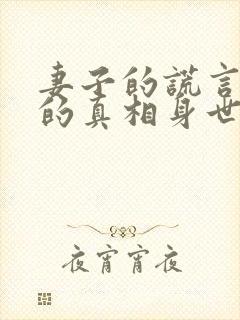 妻子的谎言
的真相身世
夜宵宵夜